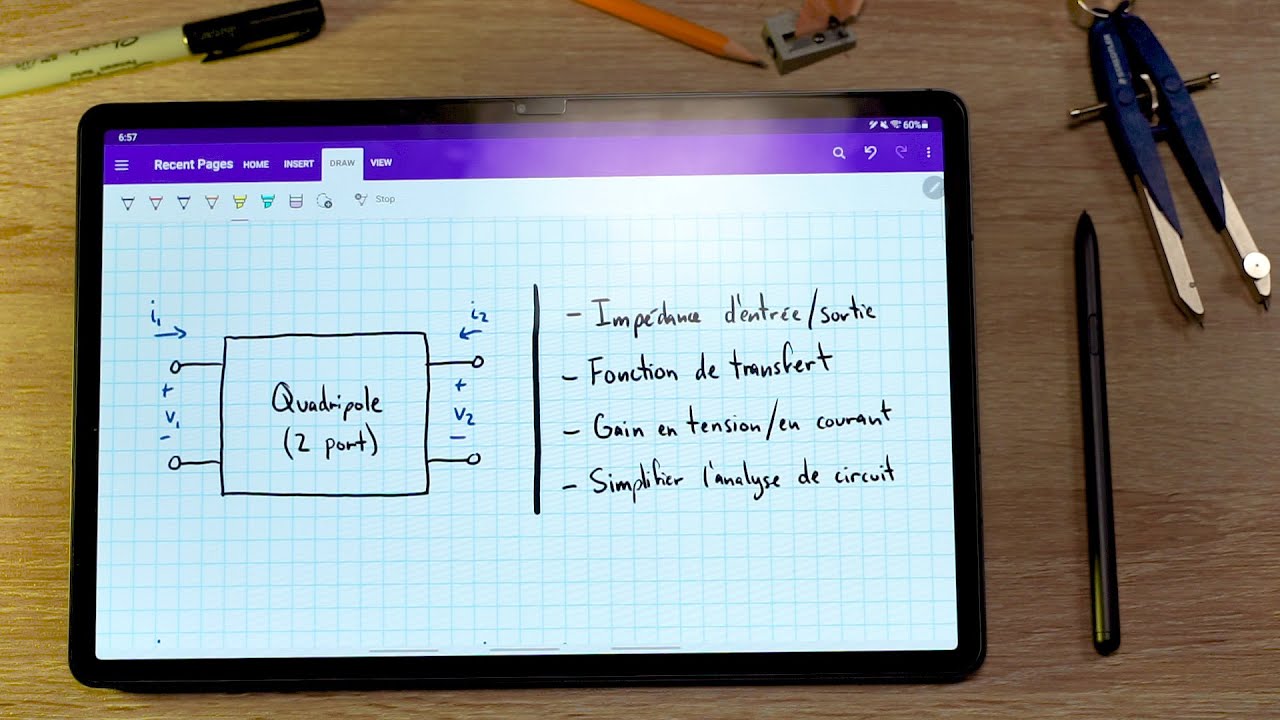 6:57
60%
Recent Pages HOME INSERT DRAW VIEW
Stop
i₁
i₂
+
v₁
-
Quadripole
(2 port)
+
v₂
-
- Impédance d'entrée/sortie
- Fonction de transfert
- Gain en tension/en courant
- Simplifier l'analyse de circuit